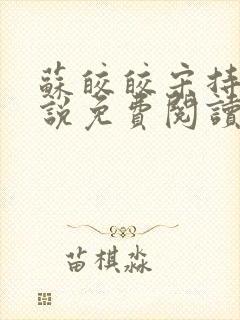 蘇皎皎宋持
說免費閱讀
苗棋淼